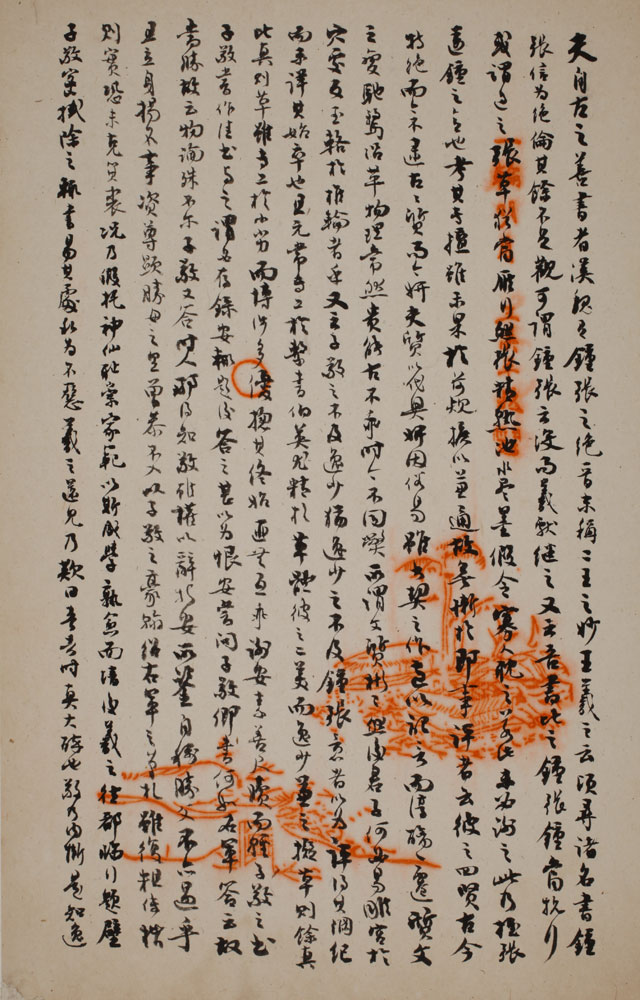 夫自古之善書者漢魏有鍾張之絕晉末稱二王之妙王羲之云頃尋諸名書鍾
張信為絕倫其餘不足觀可謂鍾張云沒而羲獻繼之又云吾書比之鍾張鍾當抗行
或謂過之張草猶當雁行然張精熟池水盡墨假令寡人耽之若此未必謝之此乃推張
邁鍾之意也考其專擅雖未果於前規摭以兼通故無慚於即事評者云彼之四賢古今
特絕而今不逮古古質而今妍夫質以代興妍因俗易雖書契之作適以記言而淳醨一遷質文
三變馳騖沿革物理常然貴能古不乖時今不同弊所謂文質彬彬然後君子何必易雕宮於
穴處反玉輅於椎輪者乎又云子敬之不及逸少猶逸少之不及鍾張意者以為評得其綱紀
而未詳其始卒也且元常專工於隸書伯英尤精於草體彼之二美而逸少兼之擬草則餘真
比真則草雖專工於小劣而博涉多優揔其終始匪無互乖謝安素善尺牘而輕子敬之書
子敬嘗作佳書與之謂必存錄安輒題後答之甚以為恨安嘗問子敬卿書何如右軍答云故
當勝故云物論殊不尔子敬又答時人那得知敬雖權以辭折安所鑒自稱勝父不亦過乎
且立身揚名事資尊顯勝母之里曾參不入以子敬之豪翰紹右軍之筆札雖復粗傳楷
則實恐未克箕裘況乃假托神仙恥崇家範以斯成學孰愈面牆後羲之往都臨行題壁
子敬密拭除之輒書易其處私為不惡羲之還見乃歎曰吾去時真大醉也敬乃內慚是知逸